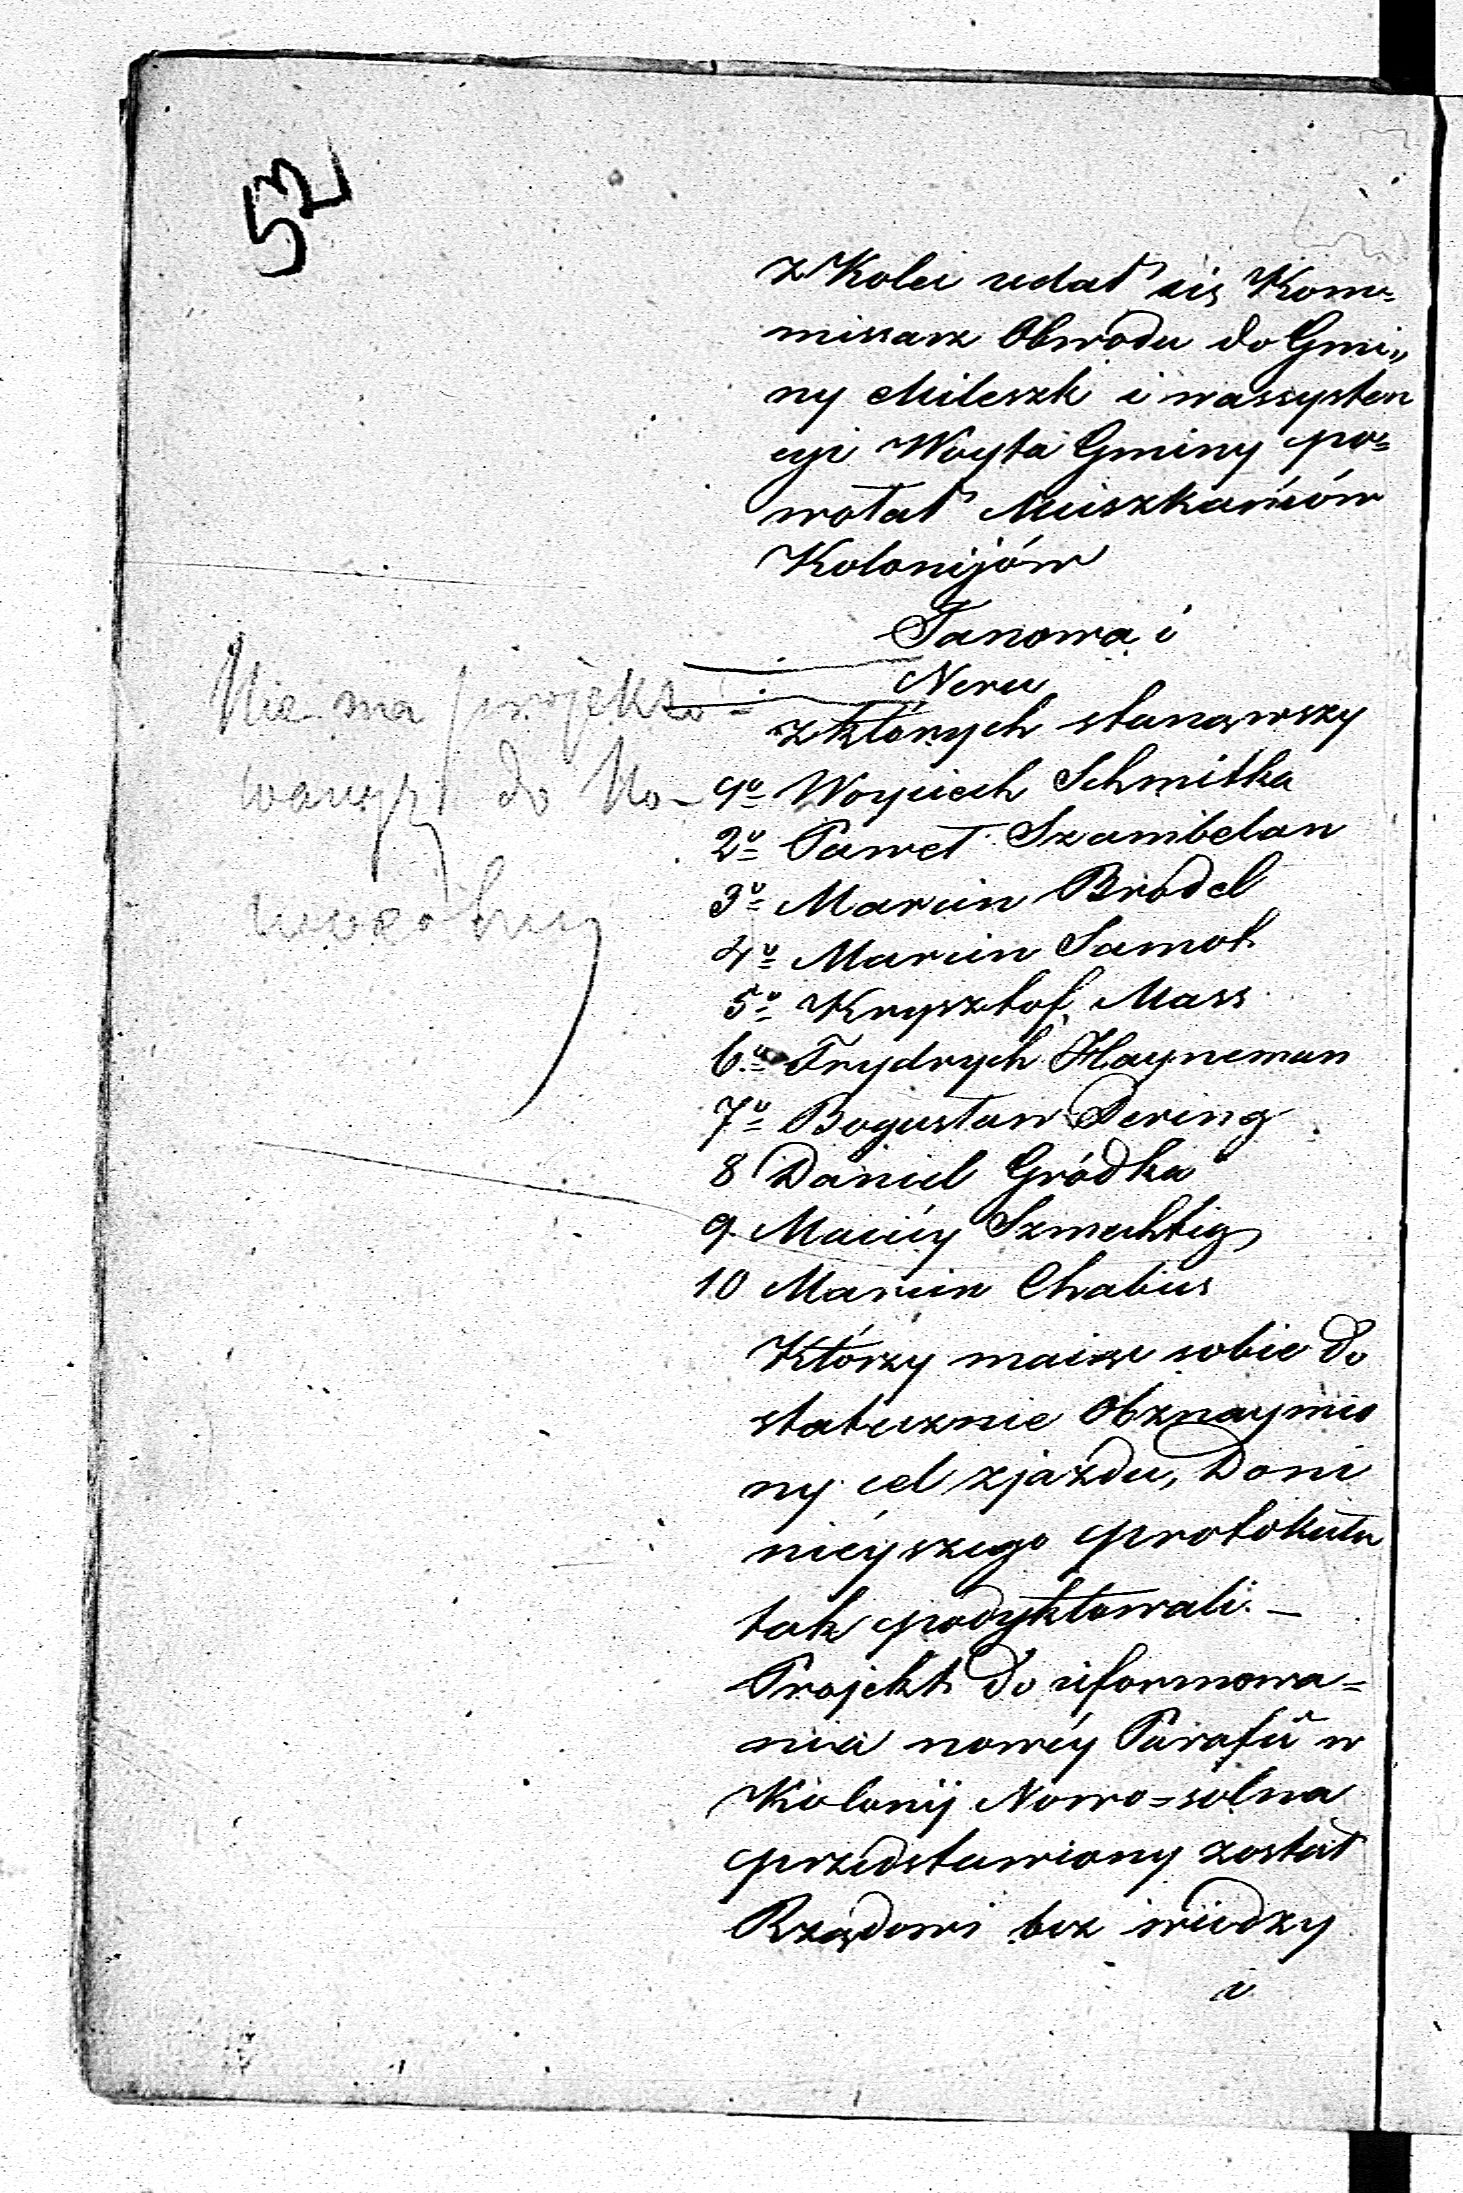 532
z Kolei udał się Kom=
missarz Obwodu do Gmi„
ny Mileszk i wassysten
cyi Woyta Gminy po=
wołał Mieszkańców
Kolonijów
Janowa i
Neru
z których stanąwszy
1o Woyciech Schmitka
2o Paweł Szambelan
3o Marcin Brodel
4o Marcin Samok
5o Krysztof Mass
6o Frydrych Hayneman
7o Bogusław Dering
8 Daniel Gródka
9 Maciéy Szmechtig
10 Marcin Chabius
Którzy maiąc sobie do
statecznie Obznaymio
ny cel zjazdu, Do ni
niéyszego protokułu
tak podyktowali. —
Projekt do uformowa=
nia nowéy Parafii w
Kolonij Nowo=solna
przedstawiony został
Rządowi bez wiedzy
i
Nie ma projekto=
do No-